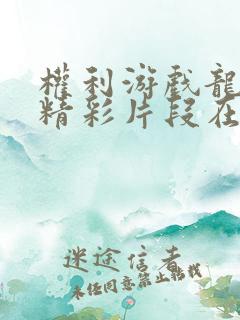 權利游戲龍
精彩片段在
迷途信者
未经同意禁止转载